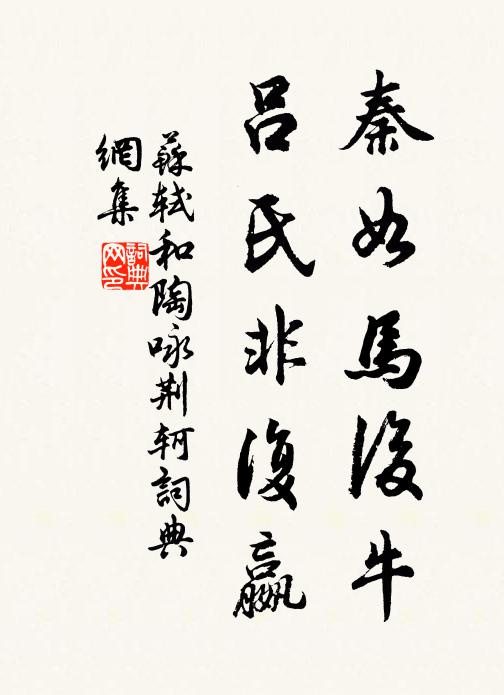 秦如馬後牛
呂氏非復嬴
蘇軾和陶咏荆軻詞典
網集
詞典网印